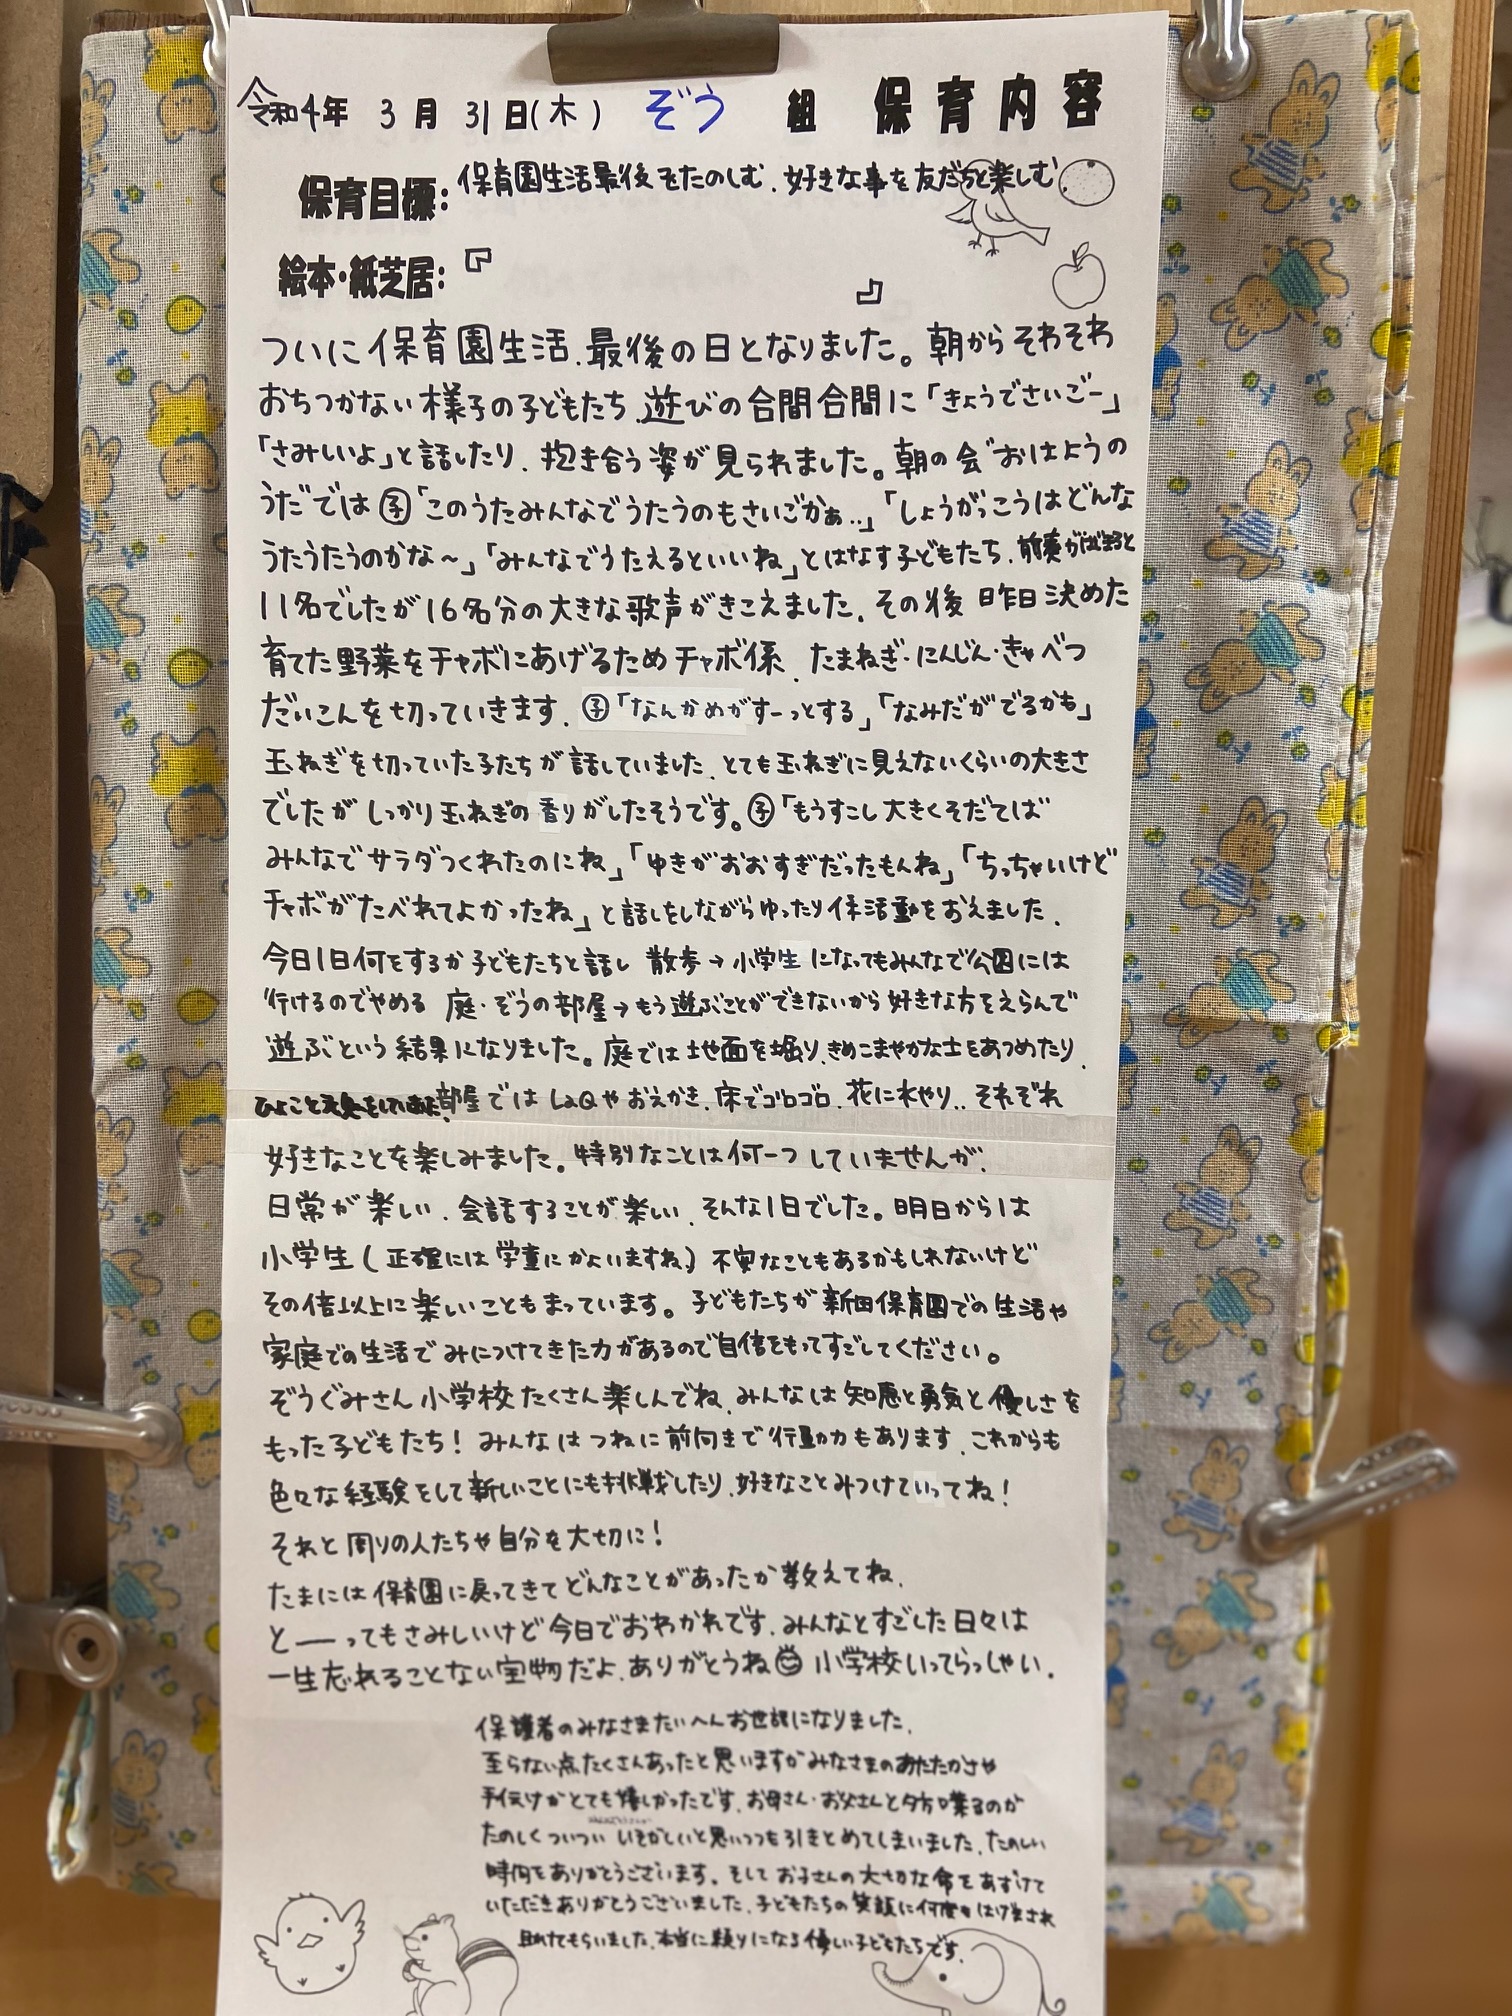 令和4年 3月 31日(木) ぞう 組 保育内容
保育目標: 保育園生活最後をたのしむ、好きな事を友だちと楽しむ
絵本・紙芝居:『 』
ついに保育園生活、最後の日となりました。朝からそわそわ
おちつかない様子の子どもたち、遊びの合間合間に「きょうでさいごー」
「さみしいよ」と話したり、抱き合う姿が見られました。朝の会"おはようの
うた"では㋙「このうたみんなでうたうのもさいごかぁ..」「しょうがっこうはどんな
うたうたうのかな～」「みんなでうたえるといいね」とはなす子どもたち、前奏がはじまると
11名でしたが16名分の大きな歌声がきこえました。その後 昨日決めた
育てた野菜をチャボにあげるためチャボ係、たまねぎ・にんじん・きゃべつ
だいこんを切っていきます。㋙「なんかめがすーっとする」「なみだがでるかも」
玉ねぎを切っていた子たちが話していました、とても玉ねぎに見えないくらいの大きさ
でしたがしっかり玉ねぎの香りがしたそうです。㋙「もうすこし大きくそだてば
みんなでサラダつくれたのにね」「ゆきがおおすぎだったもんね」「ちっちゃいけど
チャボがたべれてよかったね」と話しをしながらゆったり係活動をおえました、
今日1日何をするか子どもたちと話し 散歩→小学生になってもみんなで公園には
行けるのでやめる 庭・ぞうの部屋→もう遊ぶことができないから好きな方をえらんで
遊ぶという結果になりました。庭では地面を掘り、きめこまやかな土をあつめたり、
部屋ではLaQやおえかき、床でゴロゴロ、花に水やり.. それぞれ
好きなことを楽しみました。特別なことは何一つしていませんが、
日常が楽しい、会話することが楽しい、そんな1日でした。明日からは
小学生(正確には学童にかよいますね)不安なこともあるかもしれないけど
その倍以上に楽しいこともまっています。子どもたちが新田保育園での生活や
家庭での生活でみにつけてきた力があるので自信をもってすごしてください。
ぞうぐみさん小学校たくさん楽しんでね、みんなは知恵と勇気と優しさを
もった子どもたち！みんなはつねに前向きで行動力もあります、これからも
色々な経験をして新しいことにも挑戦したり、好きなことみつけていってね！
それと周りの人たちや自分を大切に！
たまには保育園に戻ってきてどんなことがあったか教えてね、
と――ってもさみしいけど今日でおわかれです、みんなとすごした日々は
一生忘れることない宝物だよ、ありがとうね 小学校いってらっしゃい、
保護者のみなさまたいへんお世話になりました、
至らない点たくさんあったと思いますがみなさまのあたたかさや
手伝けがとても嬉しかったです、お母さん・お父さんと夕方喋るのが
たのしくついつい いそがしいと思いつつも引きとめてしまいました、たのしい
時間をありがとうございます。そしてお子さんの大切な命をあずけて
いただきありがとうございました、子どもたちの笑顔に何度もはげまされ
助けてもらいました、本当に頼りになる優しい子どもたちです。